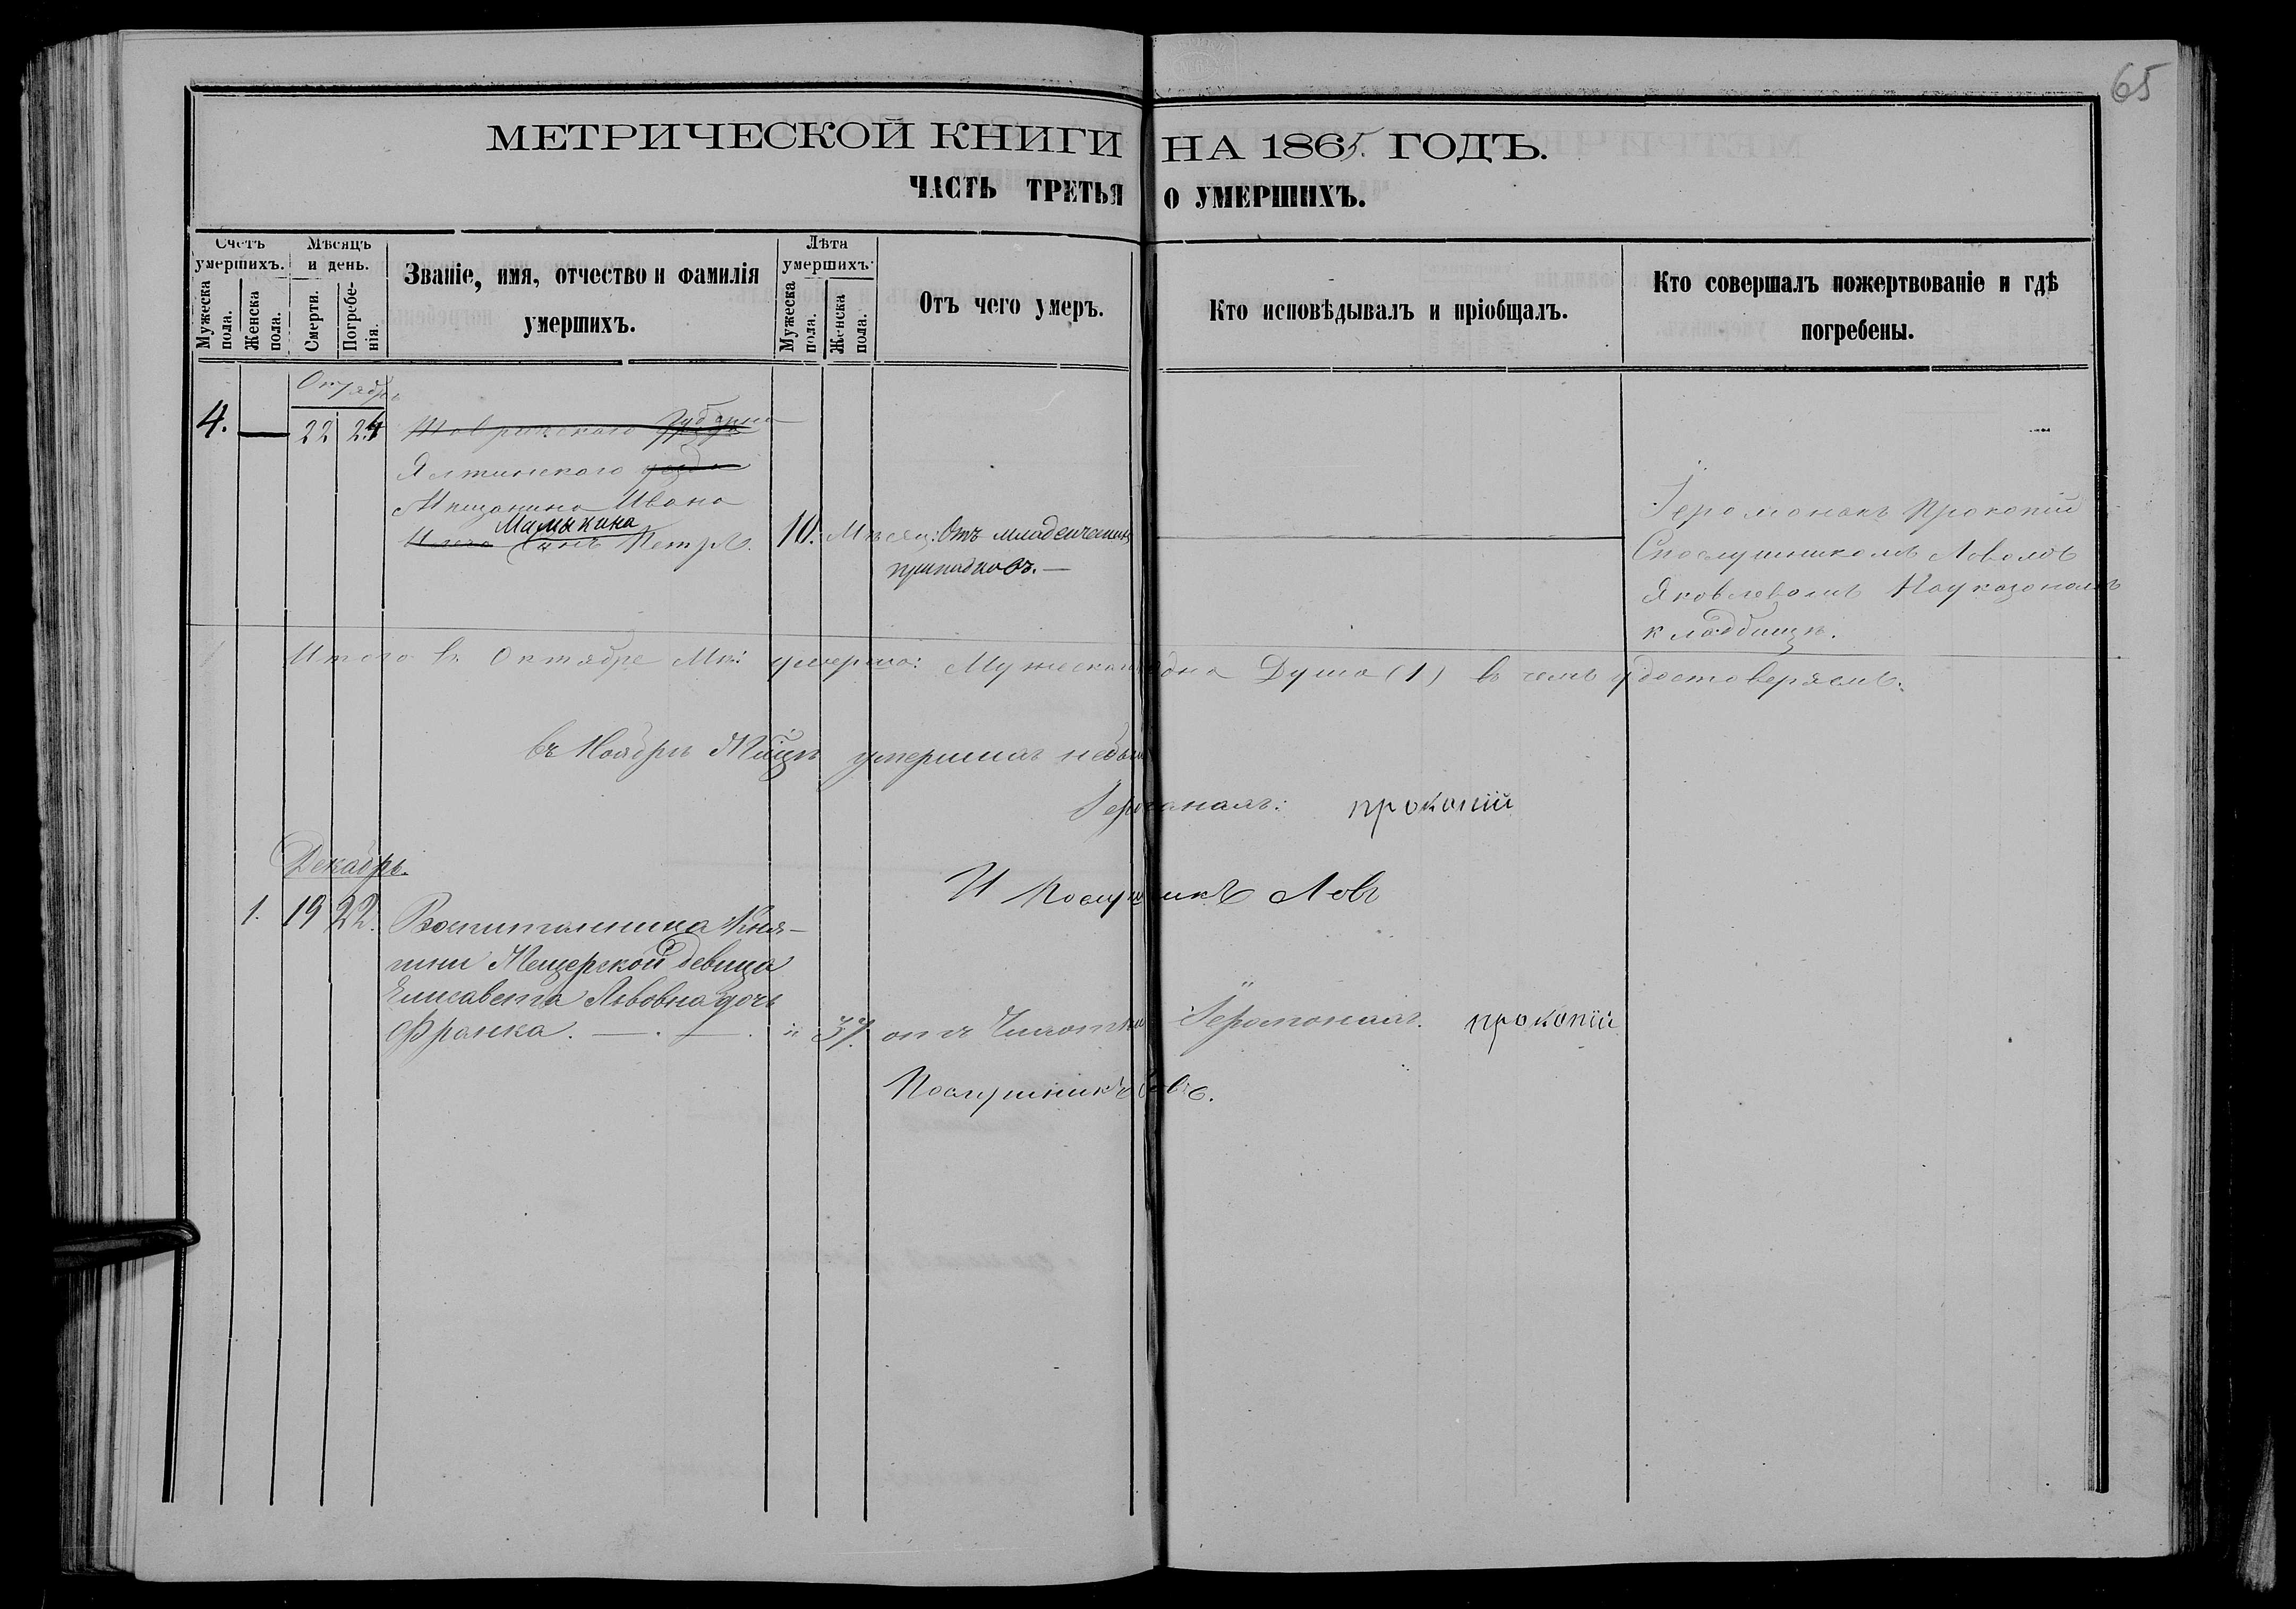 65
МЕТРИЧЕСКОЙ КНИГИ НА 1865. ГОДЪ.
ЧАСТЬ ТРЕТЬЯ О УМЕРШИХЪ.
Счетъ умершихъ.
Мужеска пола.
Женска пола.
Мѣсяцъ и день.
Смерти.
Погребенія.
Званіе, имя, отчество и фамилія
умершихъ.
Лѣта умершихъ.
Мужеска пола.
Женска пола.
Отъ чего умеръ.
Кто исповѣдывалъ и пріобщалъ.
Кто совершалъ пожертвованіе и гдѣ
погребены.
Октябрь
4. — 22 24
Таврическаго Губерна
Ялтинскаго уезда
Мещанина Ивана
Мамыкина
сынъ Петръ. 10. Мѣсяц: Отъ младенческихъ
припадковъ. —
Іеромонахъ Прокопій
Спослушникомъ
Яковлевомъ
кладбищѣ.
Итого въ Октябре Мѣс: умерло: Мужеска одна Душа (1) въ чемъ удостоверяемъ.
въ Ноябрѣ Мѣсцѣ умершихъ небыло
Іеромонахъ: прокопій
И Послушникъ Левъ
Декабрь.
1. 19 22. Воспитанница Кня-
жни Мещерской девица
Елисавета Львовна дочь
Франка. — . — . " 37. отъ Чахотки Іеромонахъ. прокопій
Послушникъ Левъ.